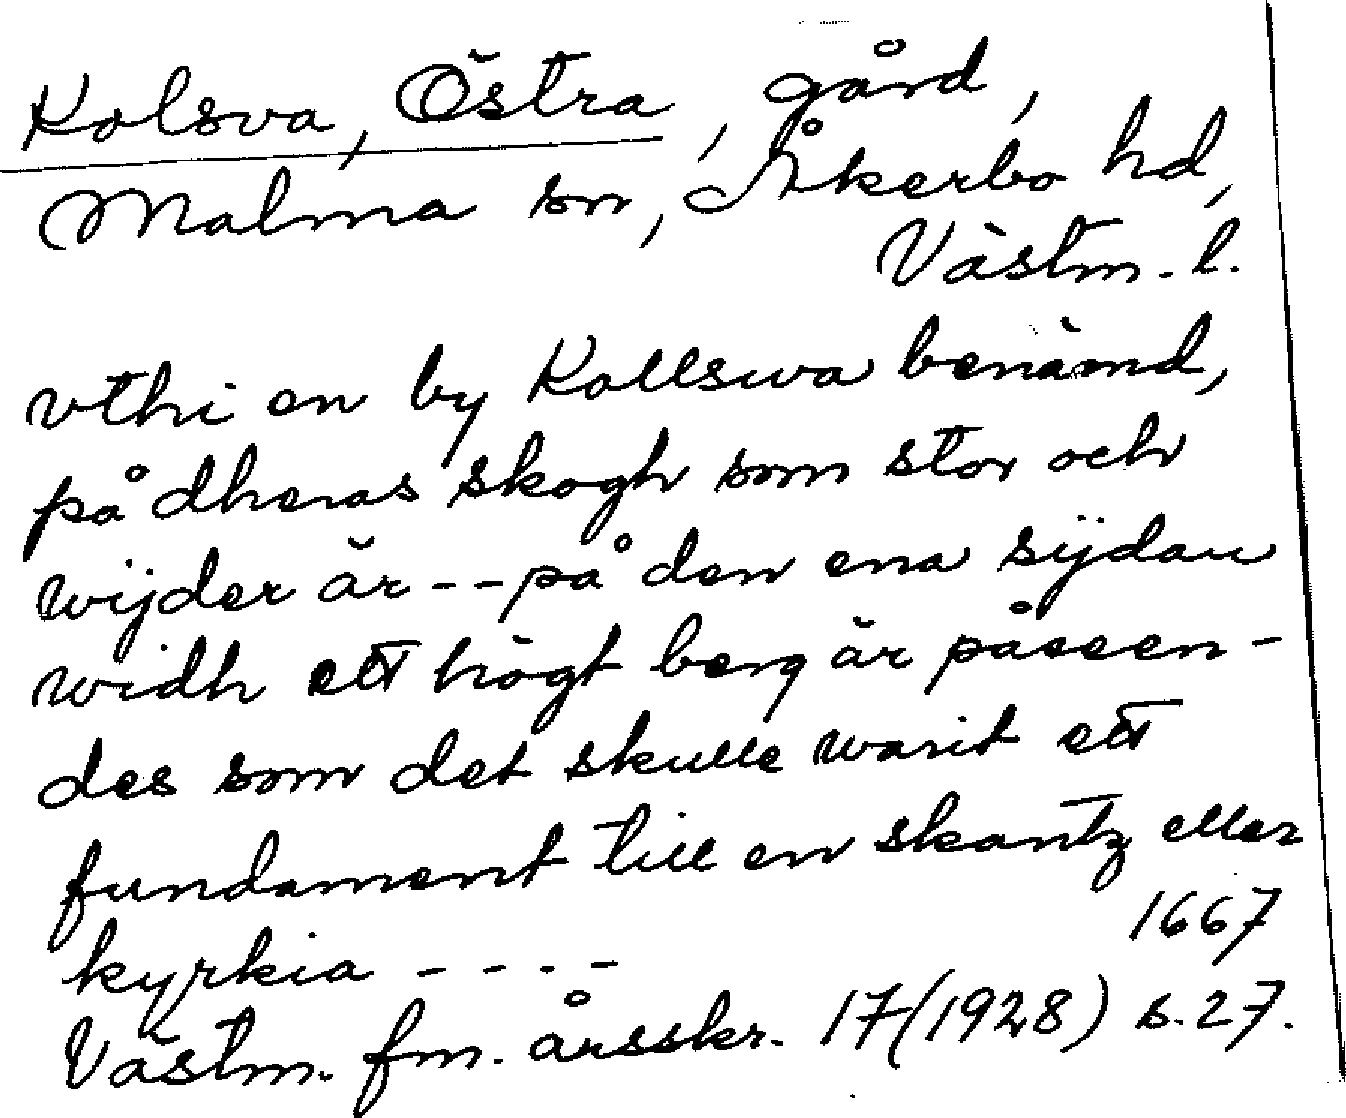 Kolsva, Östra, gård,
Malma sn, Åkerbo hd,
Västm. l.
vthi en by Kollswa benämd,
på dheras skogh som stor och
wijder är -- på den ena sijdan
widh ett högt berg är påseen-
des som det skulle warit ett
fundament till en skantz eller
kyrkia - - - - 1667
Västm. fm. årsskr. 17 (1928) s. 27.